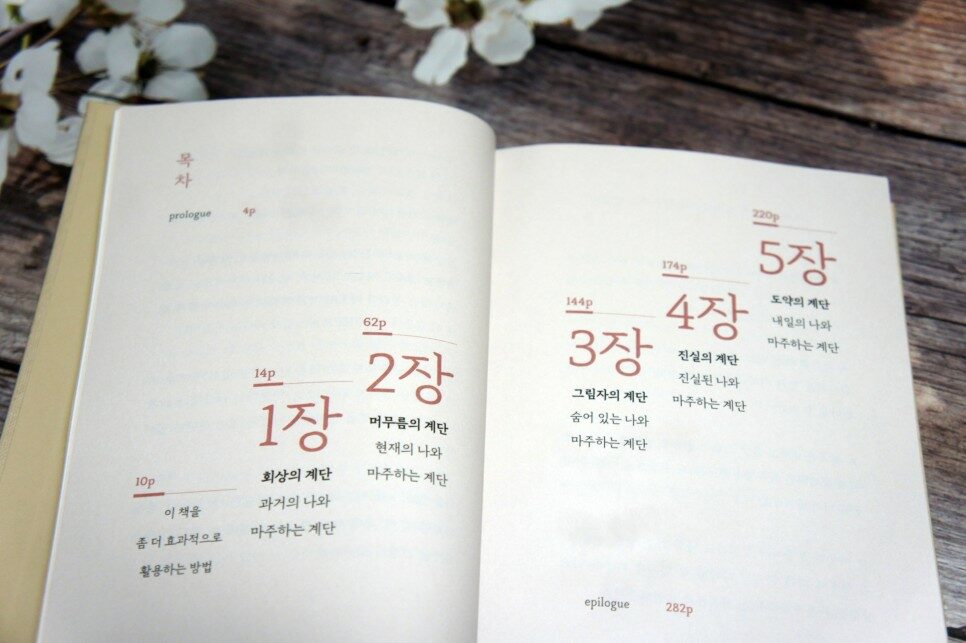 목
차
prologue 4p
10p
이 책을
좀 더 효과적으로
활용하는 방법
14p
1장
회상의 계단
과거의 나와
마주하는 계단
62p
2장
머무름의 계단
현재의 나와
마주하는 계단
144p
3장
그림자의 계단
숨어 있는 나와
마주하는 계단
174p
4장
진실의 계단
진실된 나와
마주하는 계단
220p
5장
도약의 계단
내일의 나와
마주하는 계단
epilogue 282p